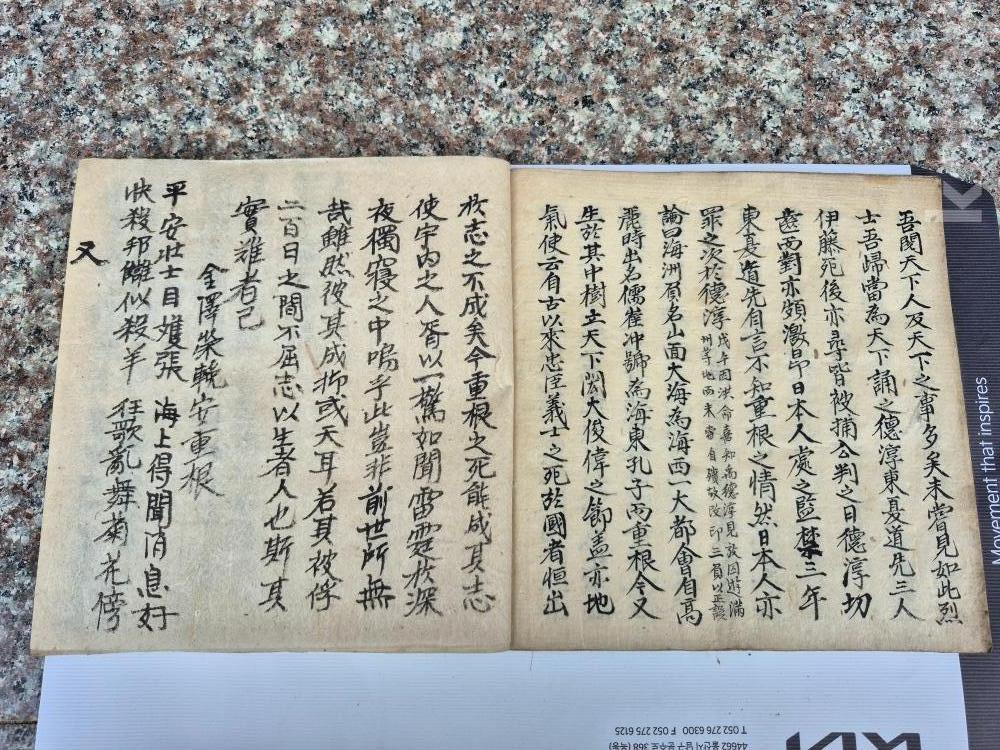 吾閱天下人及天下之事多多矣未嘗見如此烈
士吾歸當為天下誦之德淳東夏道先三人
伊藤死後亦尋皆被捕公判之日德淳切
齒而對亦頗激昂日本人處之監禁三年
東夏道先自言不知重根之情然日本人亦
罪之次於德淳
戊午因洪命憙知禹德淳見放因遊滿
州等地而未嘗自殲故改印三員以正誤
論曰海洲負名山面大海為海西一大都會自高
麗時出名儒崔冲號為海東孔子而重根今又
生於其中樹立天下閎大俊偉之節盖亦地
氣使云自古以來忠臣義士之死於國者恒出
於志之不成矣今重根之死能成其志
使宇內之人胥以一驚如聞雷霆於深
夜獨寢之中嗚乎此豈非前世所無
哉雖然彼其成抑或天耳若其被俘
二百日之間不屈志以生者人也斯其
實難者已
金澤榮輓安重根
平安壯士目雙張
快殺邦讎似殺羊
海上得聞消息好
狂歌亂舞菊花傍
又
Movement that inspires
T 052 276 6300 F 052 275 6125
44662 울산시 남구 문수로 368 (옥동)
KIA